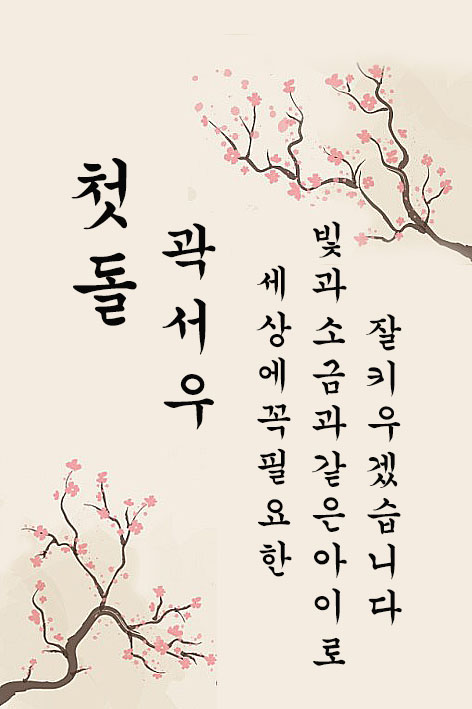 첫돌
곽서우
세상에꼭필요한
빛과소금과같은아이로
잘키우겠습니다